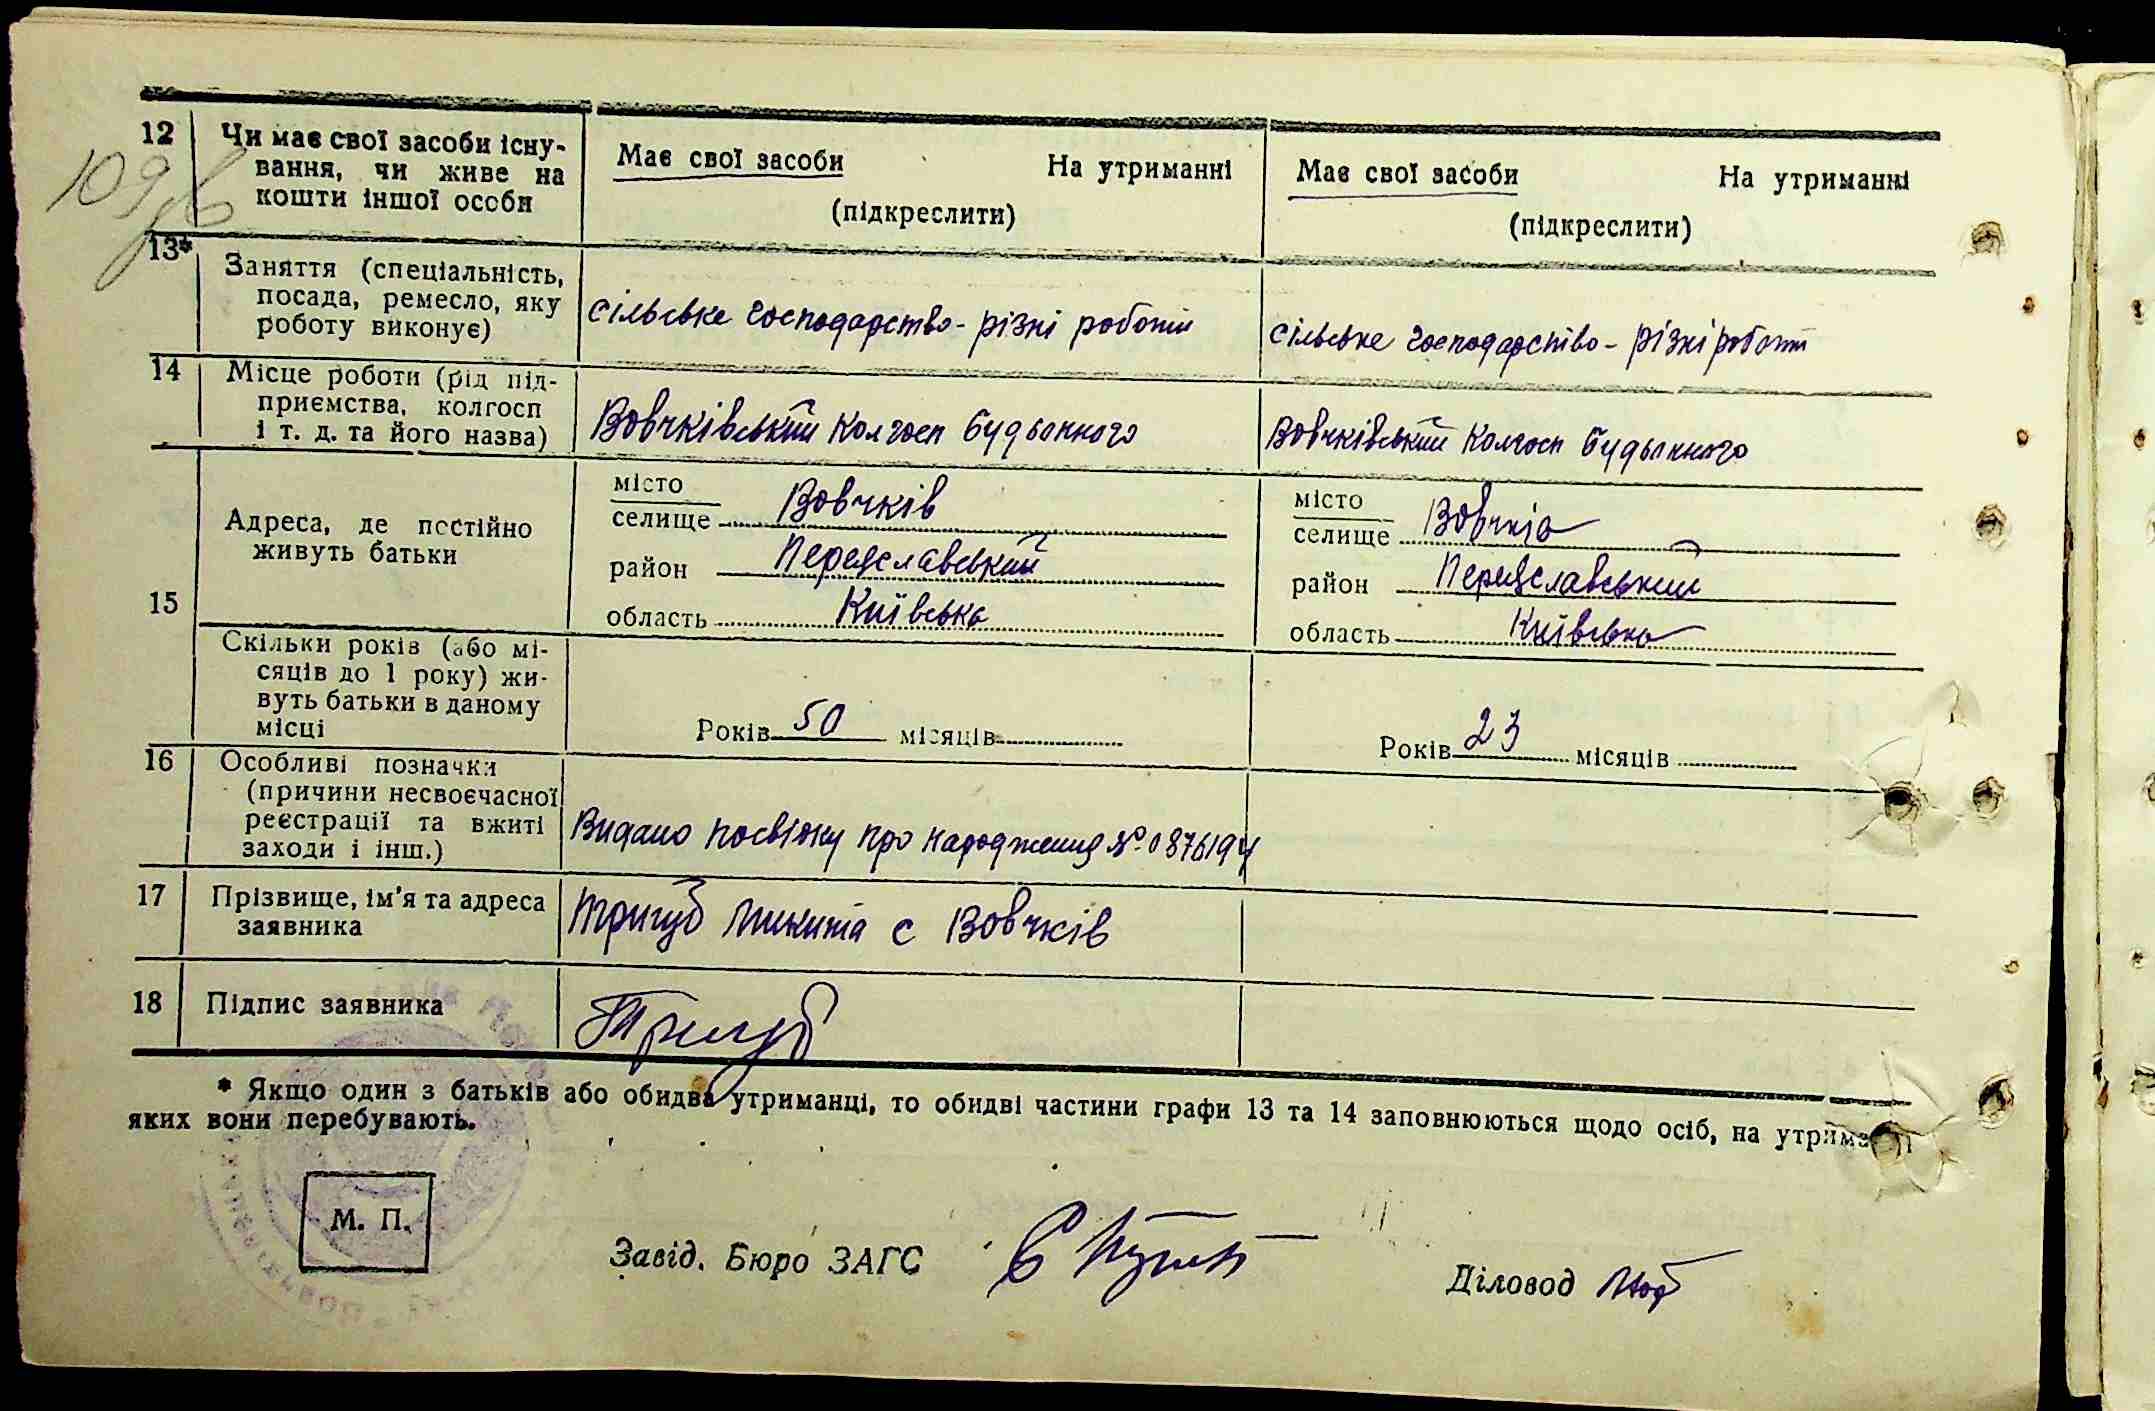 109 зв
12 Чи має свої засоби існу-
вання, чи живе на
кошти іншої особи
Має свої засоби На утриманні
(підкреслити)
Має свої засоби На утриманні
(підкреслити)
13* Заняття (спеціальність,
посада, ремесло, яку
роботу виконує)
Сільське господарство - різні роботи
Сільське господарство - різні роботи
14 Місце роботи (рід під-
приємства, колгосп
і т. д. та його назва)
Вовчківський колгосп Будьонного
Вовчківський колгосп Будьонного
15
Адреса, де постійно
живуть батьки
місто
селище Вовчків
район Переяславський
область Київська
місто
селище Вовчків
район Переяславський
область Київська
Скільки років (або мі-
сяців до 1 року) жи-
вуть батьки в даному
місці
Років 50 місяців
Років 23 місяців
16 Особливі позначки
(причини несвоєчасної
реєстрації та вжиті
заходи і інш.)
Видано посвідку про народження № 0876194
17 Прізвище, ім'я та адреса
заявника
Тригуб Микита с Вовчків
18 Підпис заявника
Тригуб
* Якщо один з батьків або обидва утриманці, то обидві частини графи 13 та 14 заповнюються щодо осіб, на утриманні
яких вони перебувають.
М. П.
Завід. Бюро ЗАГС
Діловод